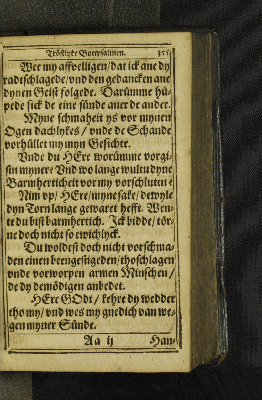 Tröstlyke Boetpsalmen. 355
Wee my affvelligen/dat ick ane dy
radtschlagede/vnd den gedancken ane
dynen Geist folgede. Darümme hü-
pede sick de eine sünde auer de ander.
Myne schmaheit ys vor mynen
Ogen dachlykes / vnde de Schande
vorhüllet my myn Gesichte.
Vnde du HErr worümme vorgi-
stu myner? Vnd wo lange wultu dyne
Barmherticheit vor my vorschluten?
Nim vp/ HEre/ myne sake/ dewyle
dyn Torn lange gewaret hefft. Wen-
te du bist barmhertich. Ick bidde/ tör-
ne doch nicht so ewichlyck.
Du woldest doch nicht vorschma-
den einen beengestigeden/thoschlagen
vnde vorworpen armen Minschen/
de dy demödigen anbedet.
HEre GOdt / kehre dy wedder
tho my/ vnd wes my gnedich van we-
gen myner Sünde.
Aa ij Han-